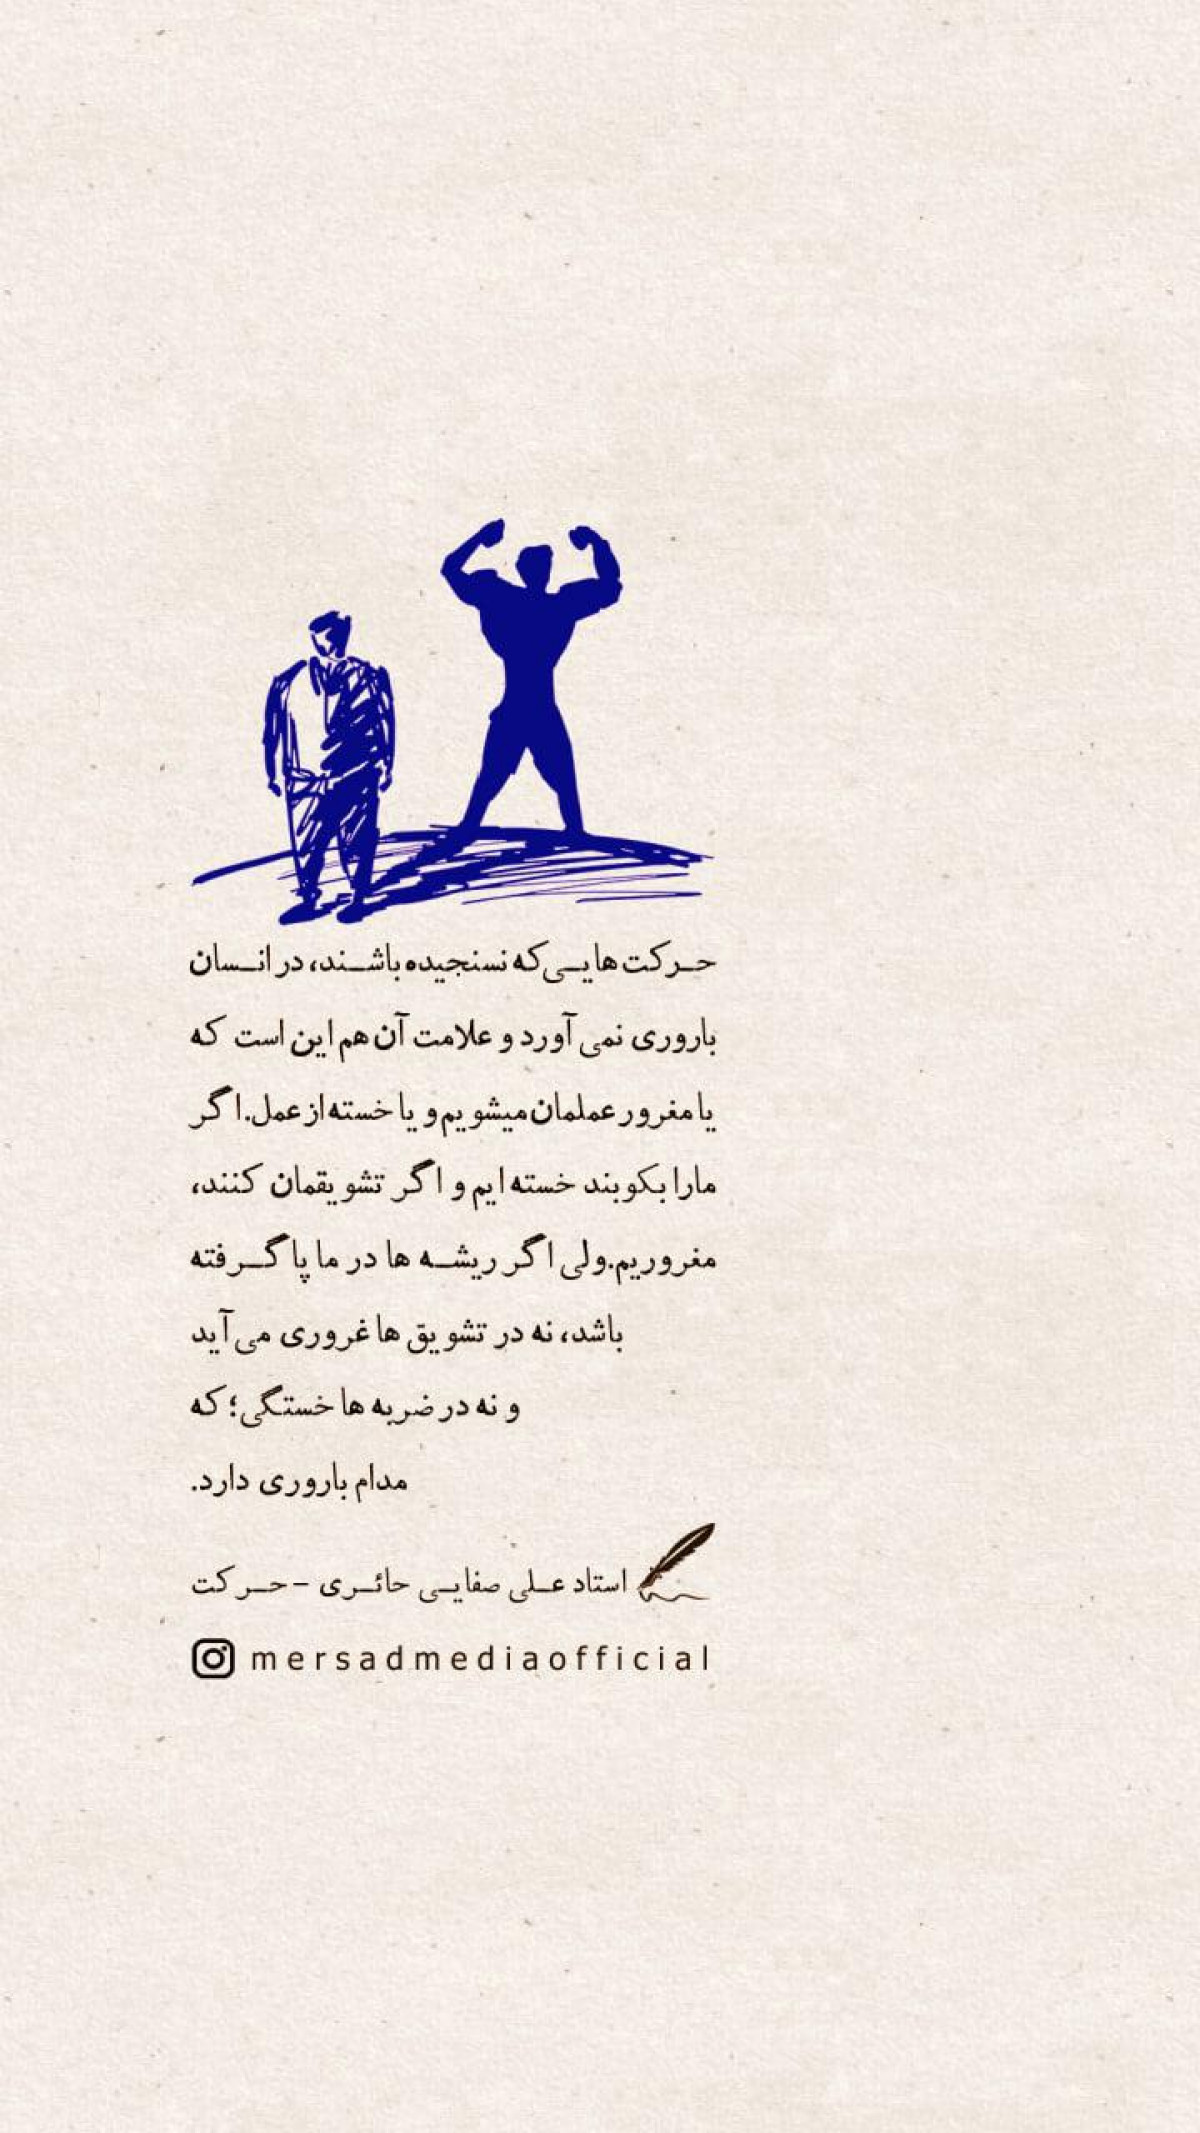 حرکت هایی که نسنجیده باشند، در انسان
باروری نمی آورد و علامت آن هم این است که
یا مغرور عملمان میشویم و یا خسته از عمل. اگر
ما را بکوبند خسته ایم و اگر تشویقمان کنند،
مغروریم. ولی اگر ریشه ها در ما پا گرفته
باشد، نه در تشویق ها غروری می آید
و نه در ضربه ها خستگی؛ که
مدام باروری دارد.
استاد علی صفایی حائری - حرکت
mersadmediaofficial